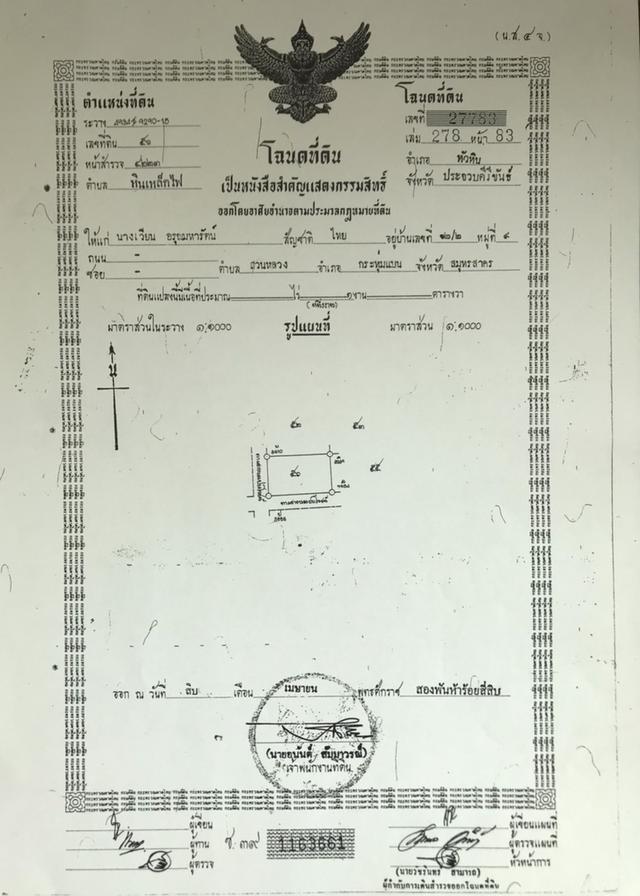 (น.ส. ๔ จ.)
ตำแหน่งที่ดิน
ระวาง
เลขที่ดิน ๕๐
หน้าสำรวจ ๔๒๒๓
ตำบล หินเหล็กไฟ
โฉนดที่ดิน
เลขที่ 27783
เล่ม 278 หน้า 83
อำเภอ หัวหิน
จังหวัด ประจวบคีรีขันธ์
โฉนดที่ดิน
เป็นหนังสือสำคัญแสดงกรรมสิทธิ์
ออกโดยอาศัยอำนาจตามประมวลกฎหมายที่ดิน
ให้แก่ นางเวียน อรุณมหารัตน์ สัญชาติ ไทย อยู่บ้านเลขที่ ๑๐/๒ หมู่ที่ ๙
ถนน -
ซอย - ตำบล สวนหลวง อำเภอ กระทุ่มแบน จังหวัด สมุทรสาคร
ที่ดินแปลงนี้มีเนื้อที่ประมาณ ไร่ ๑ งาน ตารางวา
มาตราส่วนในระวาง ๑:๑๐๐๐ รูปแผนที่ มาตราส่วน ๑:๑๐๐๐
น
๕๒ ๕๓
๕๐ ๕๔
ทางสาธารณประโยชน์
ออก ณ วันที่ สิบ เดือน เมษายน พุทธศักราช สองพันห้าร้อยสี่สิบ
เจ้าพนักงานที่ดิน
ผู้เขียน
ผู้ทาน
ผู้ตรวจ
ช. ๓๙ 1163661
ผู้เขียนแผนที่
ผู้ตรวจแผนที่
หัวหน้าการ
ผู้กำกับการเดินสำรวจออกโฉนดที่ดิน